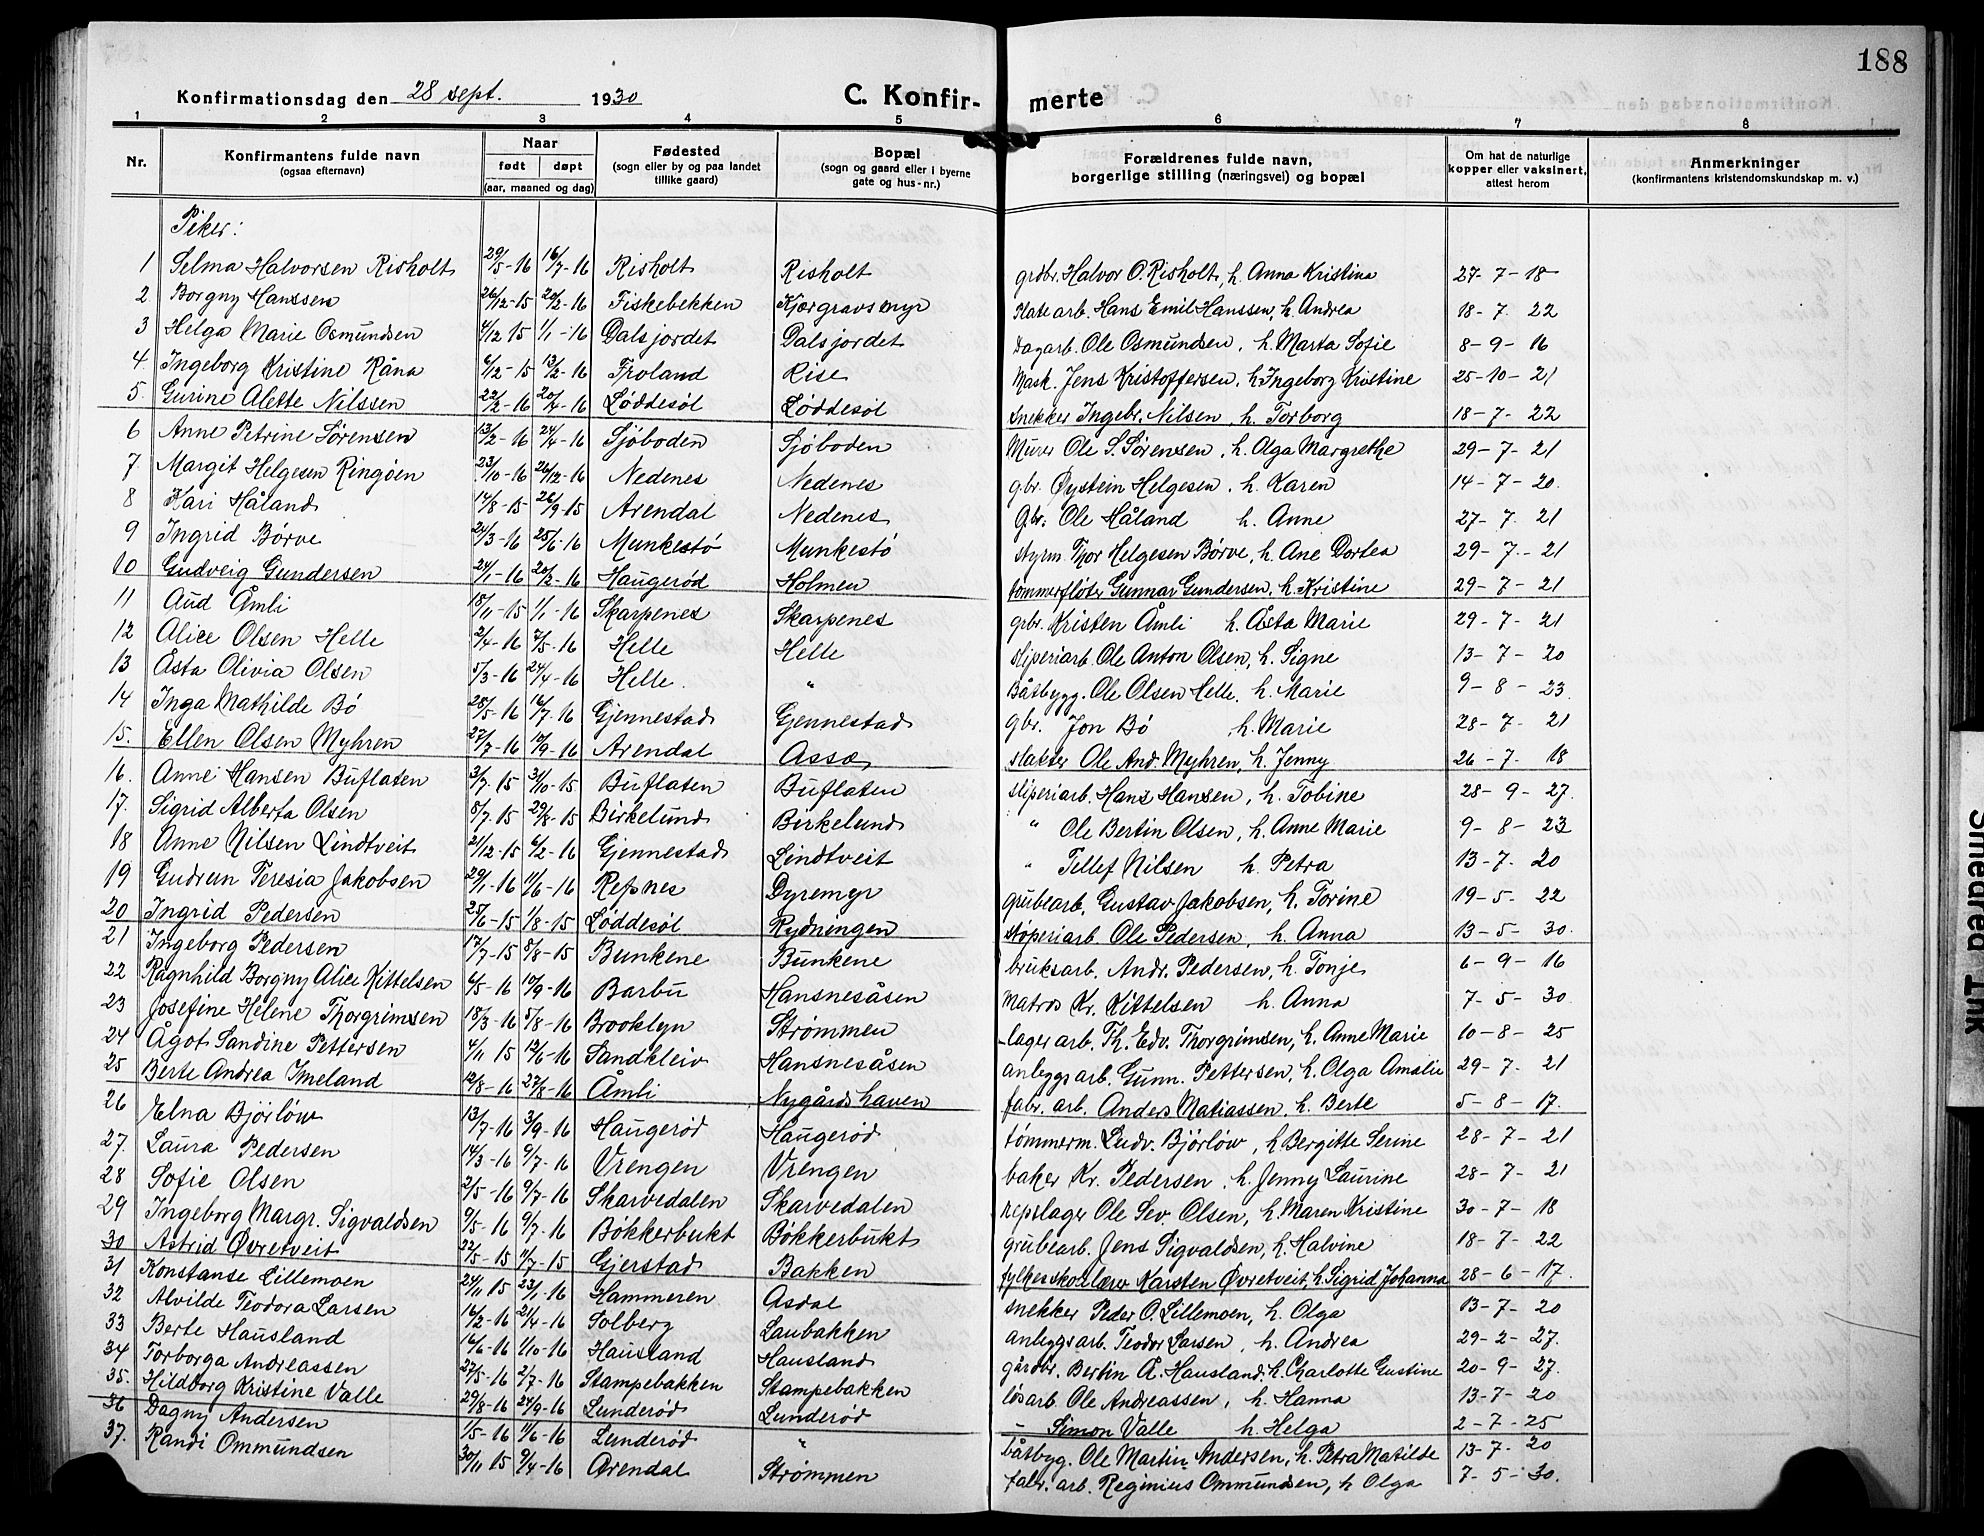 188
Konfirmationsdag den 28 sept. 1930 C. Konfir- merte
1 2 3 4 5 6 7 8
Nr. Konfirmantens fulde navn (ogsaa efternavn) Naar født døpt (aar, maaned og dag) Fødested (sogn eller by og paa landet tillike gaard) Bopæl (sogn og gaard eller i byerne gate og hus-nr.) Forældrenes fulde navn, borgerlige stilling (næringsvei) og bopæl Om hat de naturlige kopper eller vaksinert, attest herom Anmerkninger (konfirmantens kristendomskundskap m. v.)
Piker:
1 Selma Halvorsen Risholt 29/5-16 16/7-16 Risholt Risholt grdbr. Halvor O. Risholt, h. Anna Kristina 27-7-18
2 Borgny Hanssen 26/12-15 20/2-16 Fiskebekken Kjærgravsmyr arb. Hans Emil Hanssen, h. Andrea 18-7.22
3 Helga Marie Osmundsen 4/12 15 1/1-16 Dalsjordet Dalsjordet Dagarb. Ole Osmundsen, h. Marta Sofie 8-9-16
4. Ingeborg Kristine Råna 6/12-15 13/2-16 Froland Rise Mask. Jens Kristoffersen, h. Ingeborg Kristine 25-10-21
5. Gurine Alette Nilssen 22/2-16 20/4-16 Løddesøl Løddesøl snekker Ingebr. Nilsen, h. Torborg 18-7-22
6 Anne Petrine Sørensen 13/2-16 24/4-16 Sjøboden Sjøboden Murer Ole S. Sørensen, h. Olga Margrethe 29-7-21
7. Margit Helgesen Ringøen 23/10-16 26/12-16 Nedenes Nedenes gbr. Øystein Helgesen, h. Karen 14-7-20.
8 Kari Håland 14/8-15 26/9-15 Arendal Nedenes Gbr. Ole Håland h. Anne 27-7.21
9 Ingrid Børve 24/3-16 25/6-16 Munkestø Munkestø styrm. Thor Helgesen Børve, h. Ane Dortea 29-7-21
10 Gudveig Gundersen 24/1-16 20/2-16 Haugerød Holmen tømmerfløter Gunnar Gundersen, h. Kristine 29-7-21
11 Aud Åmli 18/11-15 1/1-16 Skarpenes Skarpenes grbr. Kristen Åmli h. Åsta Marie 29-7-21
12 Alice Olsen Helle 2/4-16 7/5-16 Helle Helle sliperiarb. Ole Anton Olsen, h. Signe 13-7-20
13 Åsta Olivia Olsen 5/3-16 24/4-16 Helle. " Båtbygg. Ole Olsen Helle. h. Marie 9-8-23.
14 Inga Mathilde Bø 28/5-16 16/7-16 Gjennestad Gjennestad gbr. Jon Bø h. Marie 28-7-21
15. Ellen Olsen Myhren 27/7-16 10/9-16 Arendal Assæ slakter Ole And. Myhren, h. Jenny 26-7-18
16. Anne Hansen Buflaten 3/7.15 31/10-15 Buflaten Buflaten sliperiarb. Hans Hansen, h. Tobine 28-9-27.
17. Sigrid Alberta Olsen 8/7.15 29/8-15 Birkelund Birkelund " Ole Bertin Olsen, h. Anne Marie 9-8-23
18 Anne Nilsen Lindtveit 21/12-15 6/2-16 Gjennestad Lindtveit " Tellef Nilsen h. Petra 13-7.20
19 Gudrun Teresia Jakobsen 29/1-16 11/6-16 Refsnes Dyremyr grubearb. Gustav Jakobsen, h. Torine 19-5-22
20 Ingrid Pedersen 25/6-15 1/8-15 Løddesøl Rydningen støperiarb Ole Pedersen, h. Anna 13-5-30.
21 Ingeborg Pedersen 17/7-15 8/8-15 Bunkene Bunkene bruksarb. Andr. Pedersen, h. Tonje 6-9-16
22 Ragnhild Borgny Alice Kittelsen 6/5-16 10/9-16 Barbu Hansnesåsen Matros Kr. Kittelsen h. Anna 7-5-30
23 Josefine Helene Thorgrimsen 18/3-16 5/8-16 Brooklyn Strømmen lagerarb. Th. Edv. Thorgrimsen, h. Anne Marie 10-8-25
24 Ågot Sandine Pettersen 4/11 15 12/6-16 Sandkleiv Hansnesåsen anleggsarb. Gunn. Pettersen, h. Olga Amalie 29-7.21
25 Berte Andrea Imeland 12/8-16 27/8-16 Åmli Nygårdshaven fabr. arb. Anders Matiassen, h. Berte 5-8-17.
26 Elna Bjørløw 13/7-16 3/9-16 Haugerød Haugerød tømmerm. Ludv. Bjørløw, h. Bergitte Serine 28-7-21
27. Laura Pedersen 14/3-16 9/7-16 Vrengen Vrengen baker Kr. Pedersen, h. Jenny Laurine 28-7-21
28 Sofie Olsen 2/5-16 9/7-16 Skarvedalen Skarvedalen repslager Ole Sev. Olsen, h. Maren Kristine 30-7-18
29 Ingeborg Margr. Sigvaldsen 9/5-16 9/7-16 Bøkkerbukt Bøkkerbukt grubearb. Jens Sigvaldsen, h. Halvine 18-7.22
30 Astrid Øvretveit 22/5-15 11/7-15 Gjerstad Bakken fylkesskolelærer Karsten Øvretveit, h. Sigrid Johanna 28-6-17.
31 Konstanse Lillemoen 24/11 15 23/1-16 Hammeren Asdal snekker Peder O. Lillemoen, h. Olga 13-7-20
32 Alvilde Teodora Larsen 16/2-16 24/4-16 Solberg Laubakken anleggsarb. Teodor Larsen, h. Andrea 29-2-27.
33 Berte Hausland 16/6-16 1/10-16 Hausland Hausland gårdbr. Bertin A. Hausland, h. Charlotte Gustine 20-9-27.
34 Torborga Andreassen 27/5-16 2/7-16 Stampebakken Stampebakken løsarb. Ole Andreassen, h. Hanna 13-7-20
35. Hildborg Kristine Valle 29/8-16 24/9-16 Lunderød Lunderød - Simon Valle h. Helga 2-7-25
36 Dagny Andersen 1/5-16 11/6-16 Lunderød " båtbyg. Ole Martin Andersen, h. Petra Matilde 13-7.20
37. Randi Ommundsen 30/11 15 9/4-16 Arendal Strømmen fabr. arb. Reginius Ommundsen, h Olga 7-5-30.
Smedred